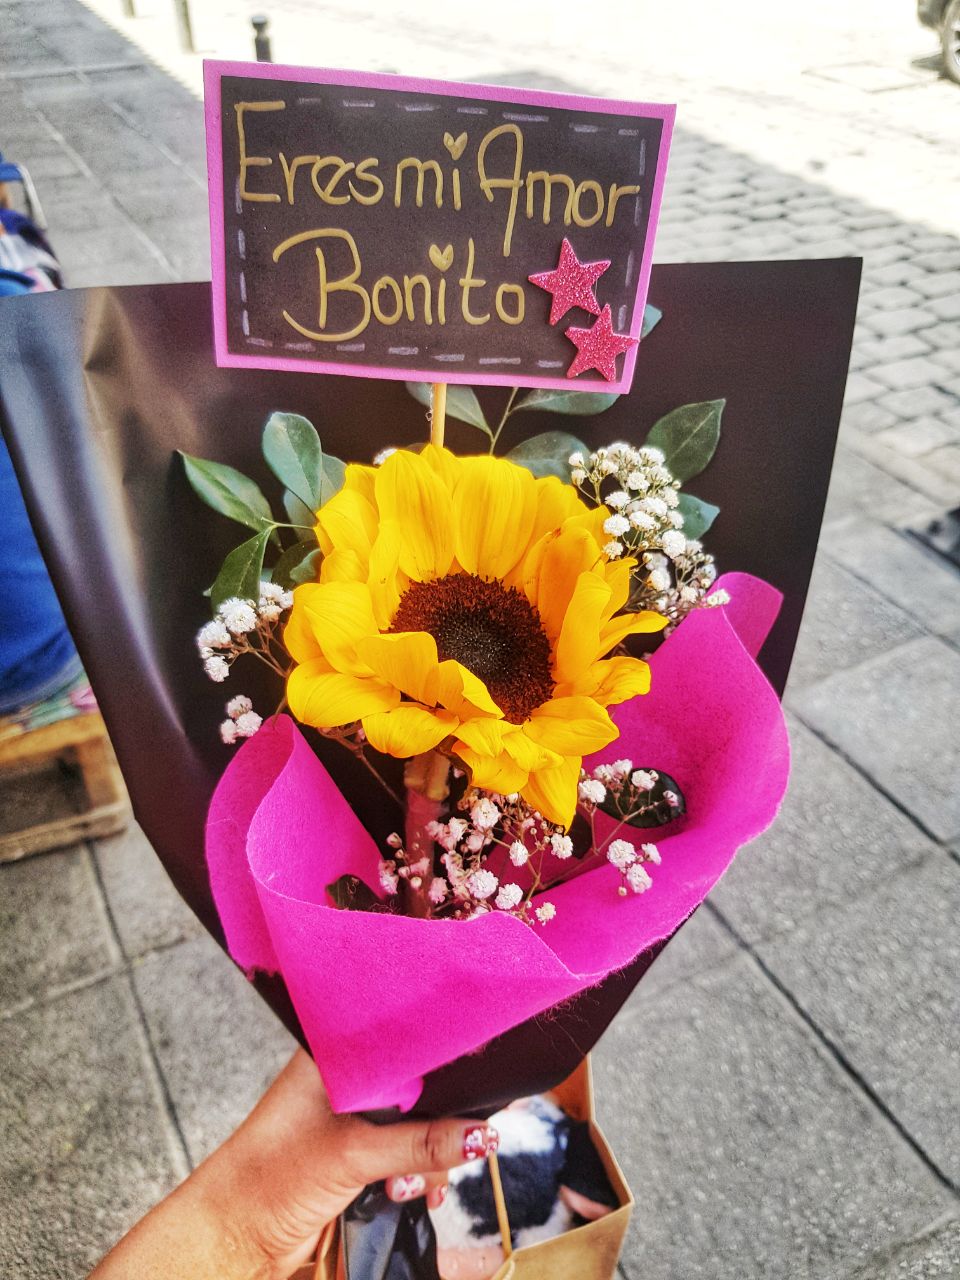 Eres mi Amor
Bonito